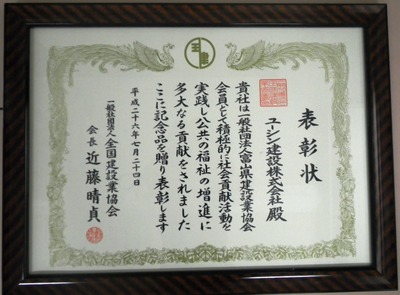 表彰状
ユーシン建設株式会社 殿
貴社は一般社団法人富山県建設業協会
会員として積極的に社会貢献活動を
実践し公共の福祉の増進に
多大なる貢献をされました
ここに記念品を贈り表彰します
平成二十六年七月二十四日
一般社団法人全国建設業協会
会長 近藤晴貞